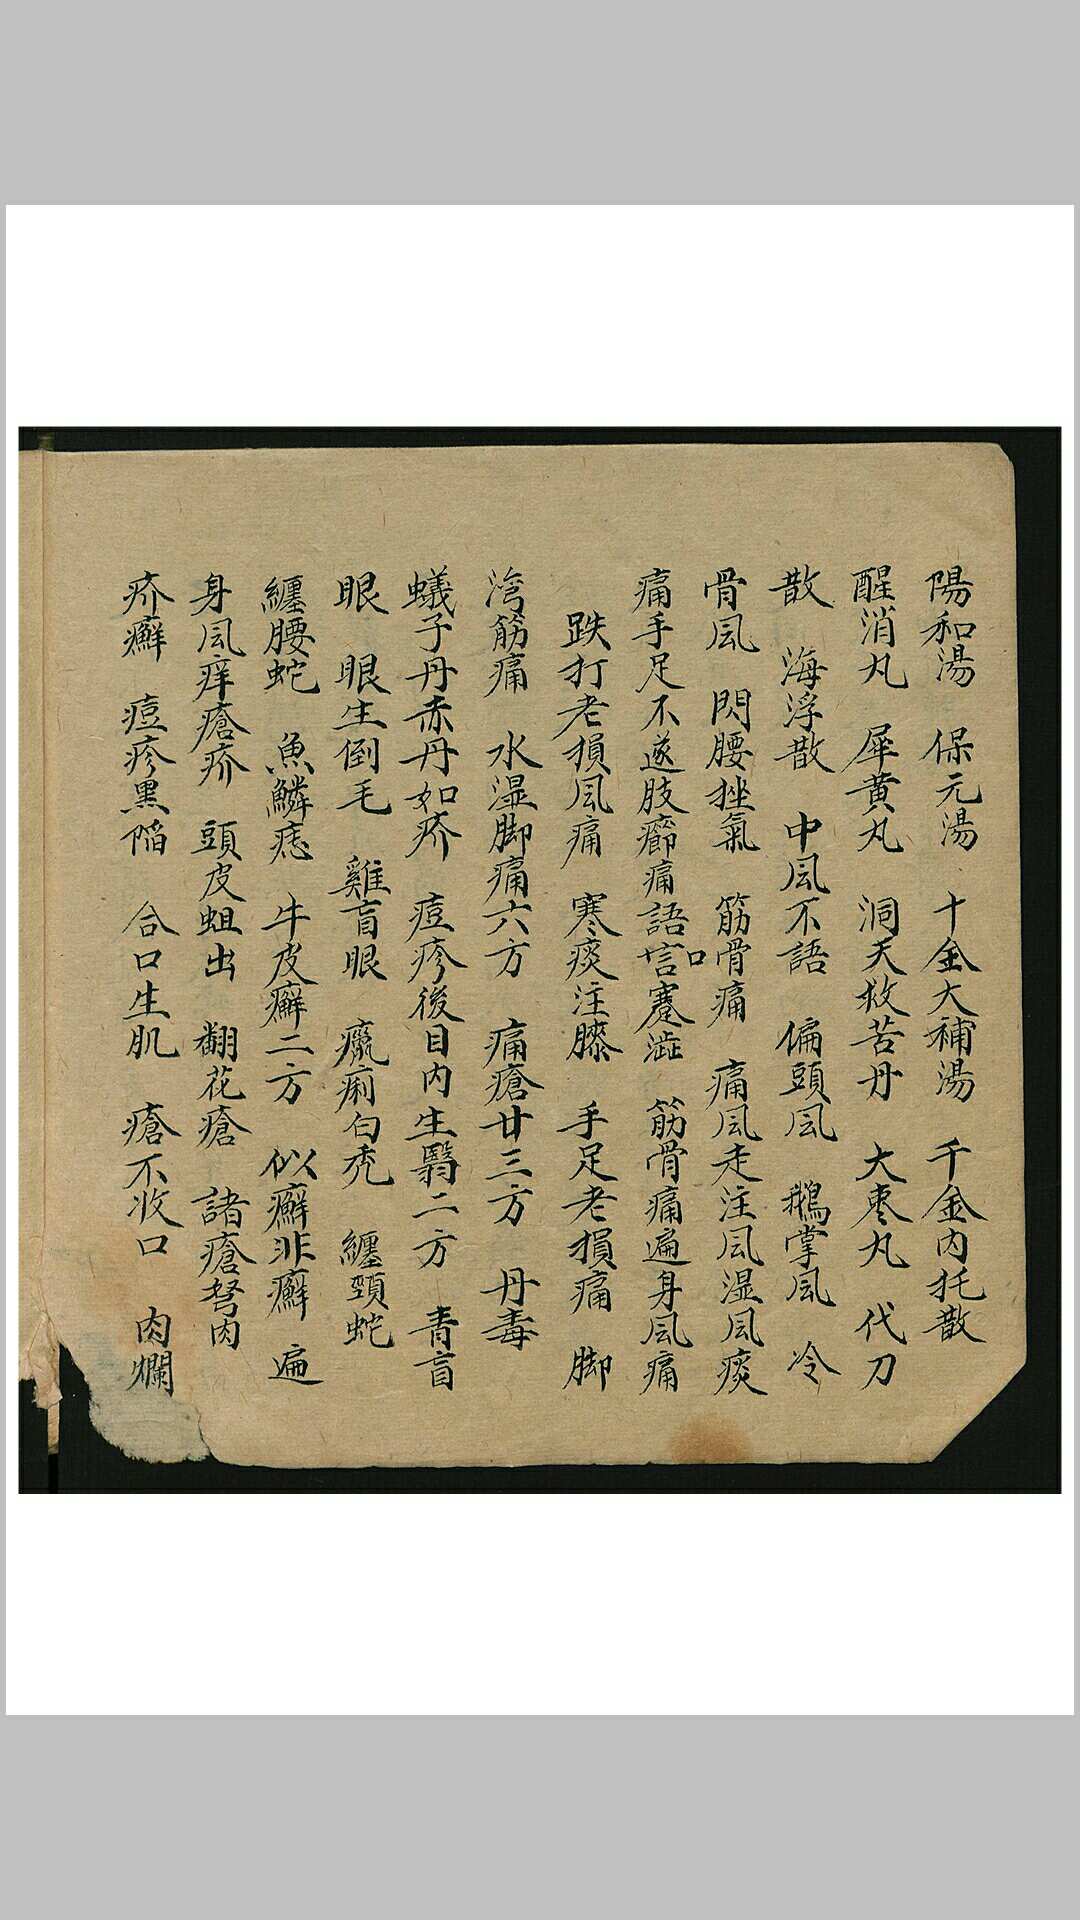 陽和湯　保元湯　十全大補湯　千金內托散
醒消丸　犀黄丸　洞天救苦丹　大棗丸　代刀
散　海浮散　中風不語　偏頭風　鵝掌風　冷
骨風　閃腰挫氣　筋骨痛　痛風走注風湿風痰
痛手足不遂肢癤痛語言口蹇澁　筋骨痛遍身風痛
跌打老損風痛　寒痰注膝　手足老損痛　脚
湾筋痛　水湿脚痛六方　痛瘡廿三方　丹毒
蟻子丹赤丹如疥　痘疹後目内生翳二方　青盲
眼　眼生倒毛　雞盲眼　癘痢白禿　纏頸蛇
纏腰蛇　魚鱗痣　牛皮癬二方　似癬非癬　遍
身風痒瘡疥　頭皮蛆出　翻花瘡　諸瘡努肉
疥癬　痘疹黑陷　合口生肌　瘡不收口　肉爛